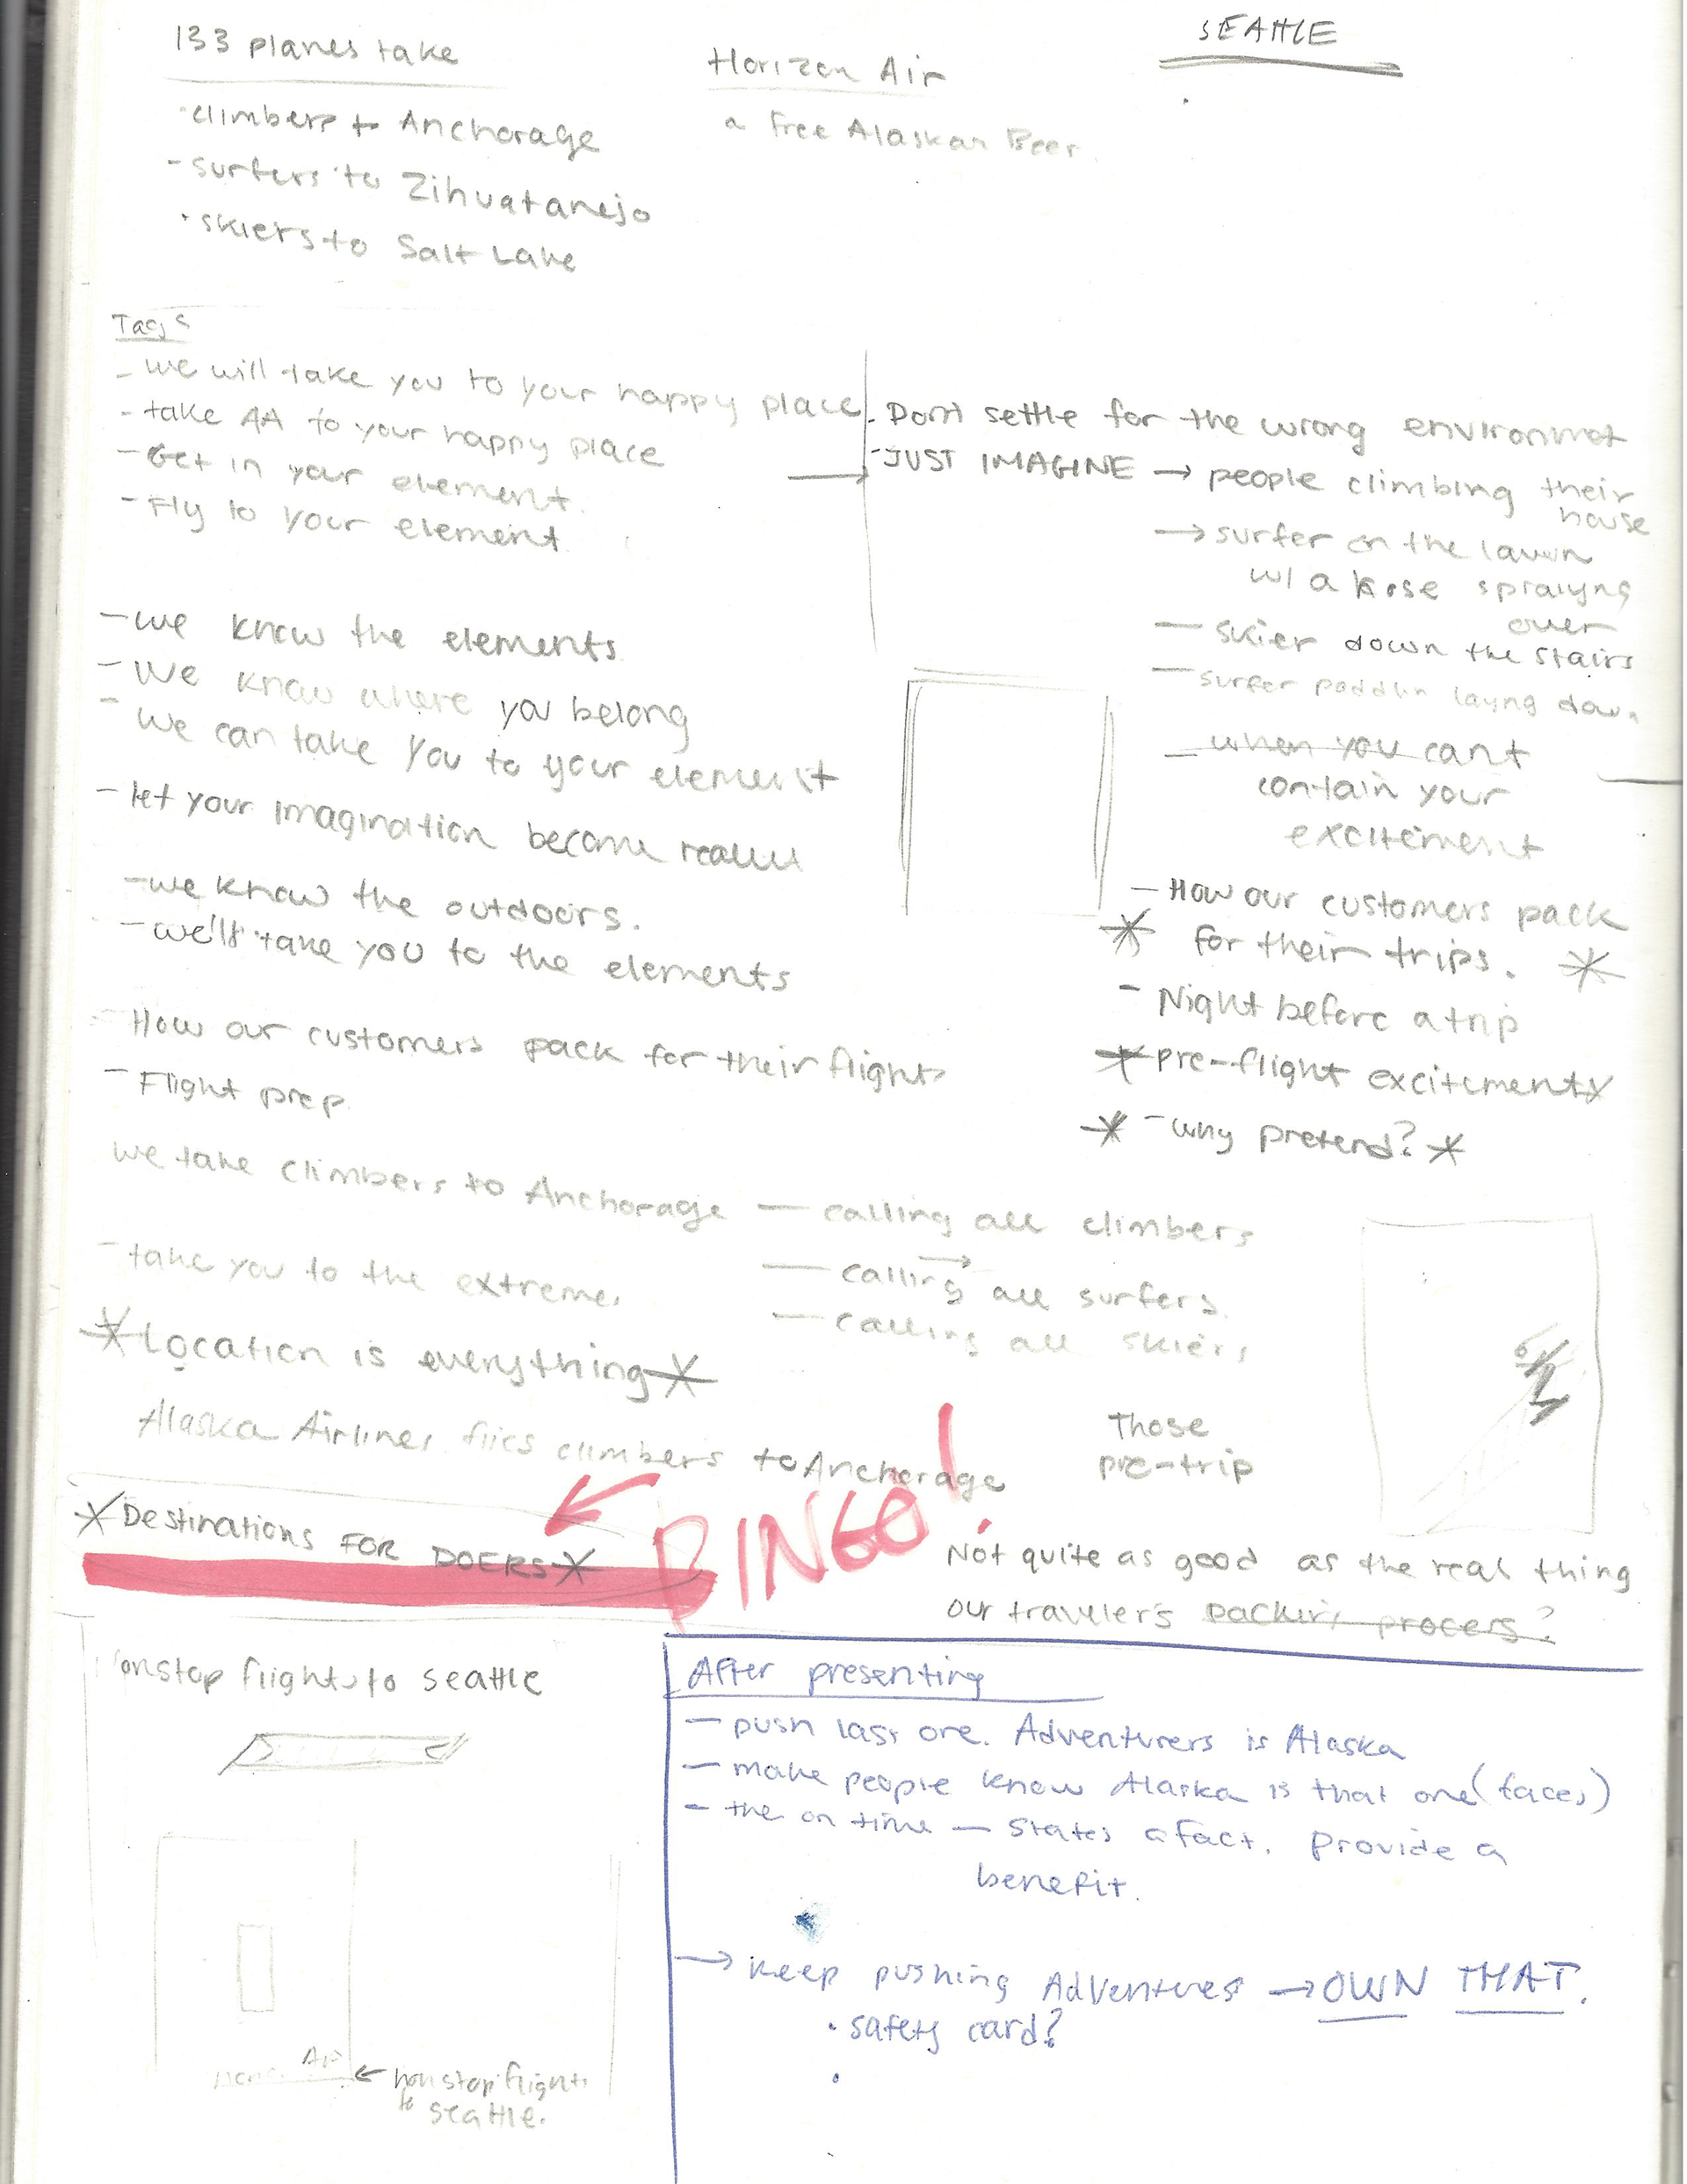 133 planes take
·climbers to Anchorage
- surfers to Zihuatanejo
· skiers to Salt Lake
Horizon Air
a Free Alaskan Beer.
SEATTLE
Tags
- we will take you to your happy place
- take AA to your happy place
- Get in your element.
- Fly to your element
- we know the elements
- We know where you belong
- We can take you to your element
- let your imagination become
- we know the outdoors.
- we'll take you to the elements
- How our customers pack for their flights
- Flight prep
we take climbers to Anchorage
- take you to the extreme.
* Location is everything *
Alaska Airlines flies climbers to Anchorage
* Destinations FOR DOERS *
BINGO!
- Don't settle for the wrong environmet
- JUST IMAGINE → people climbing their
house
→ surfer on the lawn
w/ a hose sprayng
over
— skier down the stairs
— surfer paddlin layng down
— when you cant
contain your
excitement
- How our customers pack
* for their trips. *
- Night before a trip
* pre-flight excitement *
* - why pretend? *
— calling all climbers
— calling all surfers.
— calling all skiers
Those
pre-trip
Not quite as good as the real thing
our traveler's packing process?
onstop flights to seattle
nonstop flights
to seattle.
After presenting
- push last one. Adventurers is Alaska
- make people know Alaska is that one (faces)
- the on time — states a fact. provide a
benefit.
→ keep pushing Adventures → OWN THAT.
· safety card?